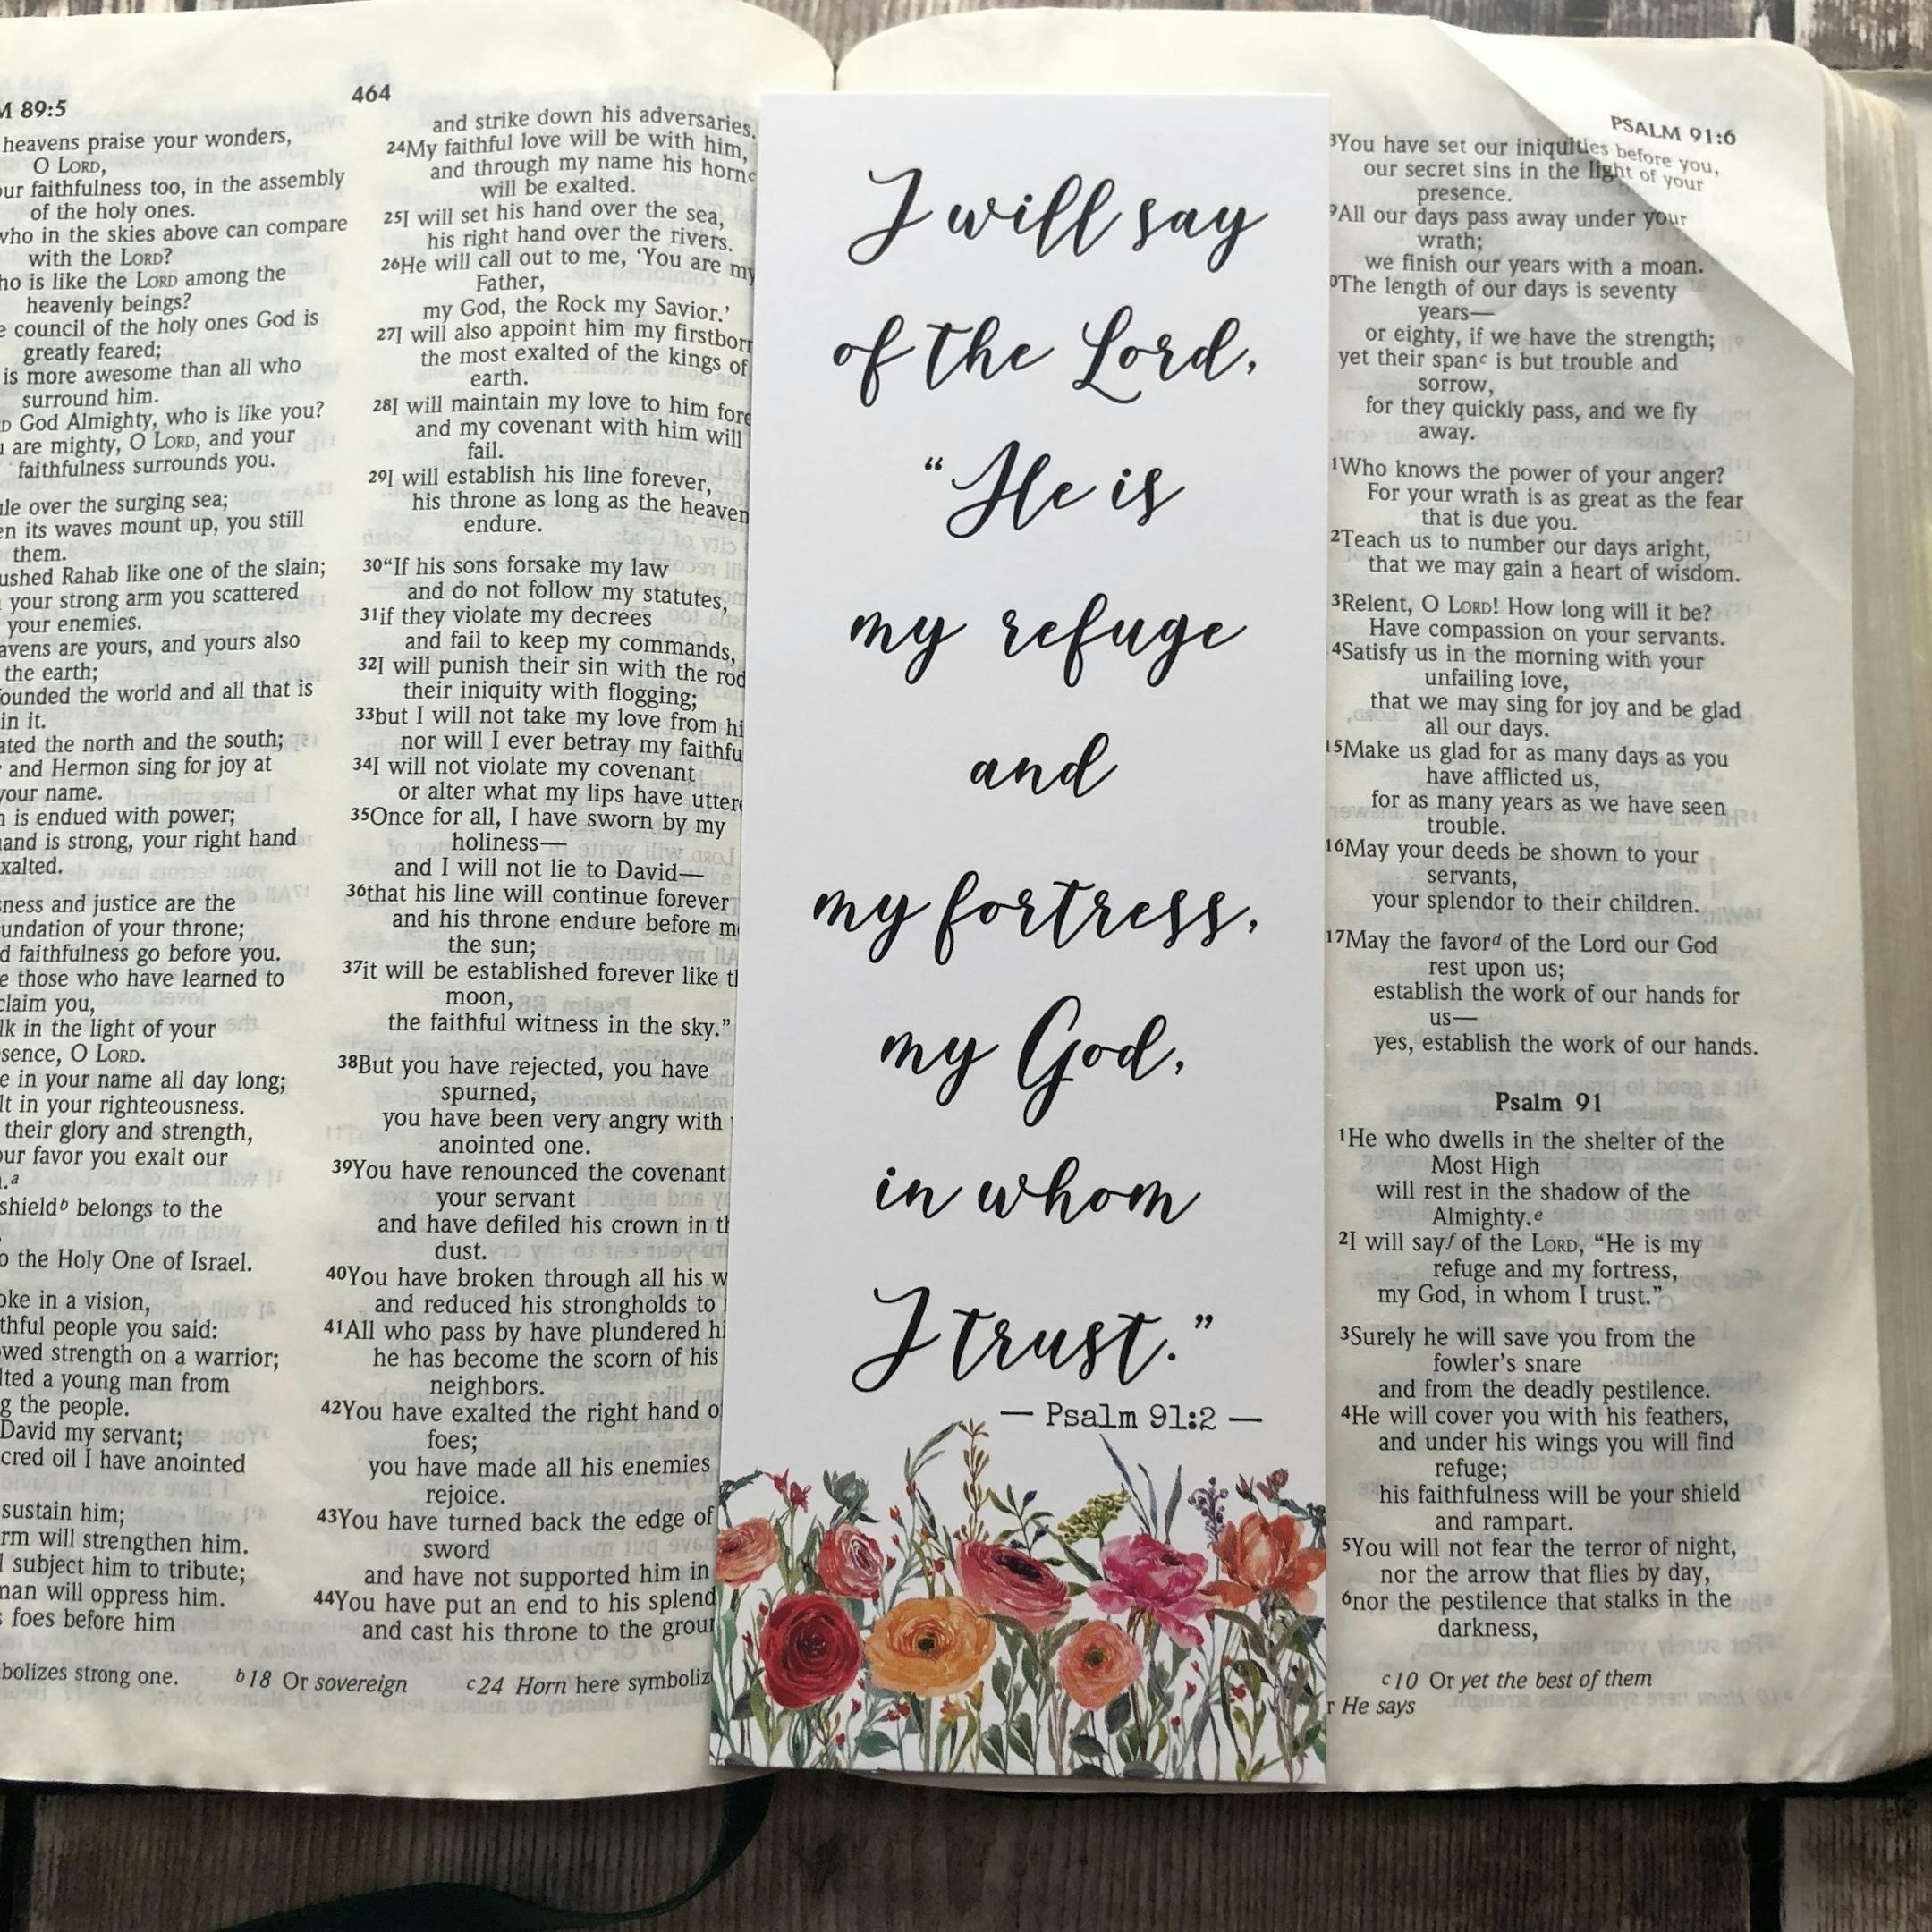 89:5
464
heavens praise your wonders,
O LORD,
faithfulness too, in the assembly
of the holy ones.
who in the skies above can compare
with the LORD?
is like the LORD among the
heavenly beings?
council of the holy ones God is
greatly feared;
is more awesome than all who
surround him.
God Almighty, who is like you?
are mighty, O LORD, and your
faithfulness surrounds you.
over the surging sea;
its waves mount up, you still
them.
Rahab like one of the slain;
your strong arm you scattered
your enemies.
are yours, and yours also
the earth;
the world and all that is
in it.
the north and the south;
and Hermon sing for joy at
your name.
is endued with power;
is strong, your right hand
and justice are the
of your throne;
faithfulness go before you.
those who have learned to
you,
in the light of your
O LORD.
in your name all day long;
in your righteousness.
their glory and strength,
favor you exalt our
a
shieldb belongs to the
the Holy One of Israel.
in a vision,
people you said:
strength on a warrior;
a young man from
the people.
David my servant;
oil I have anointed
sustain him;
will strengthen him.
subject him to tribute;
will oppress him.
foes before him
strong one. b18 Or sovereign c24 Horn here
and strike down his adversaries.
24My faithful love will be with him,
and through my name his hornc
will be exalted.
25I will set his hand over the sea,
his right hand over the rivers.
26He will call out to me, ‘You are my
Father,
my God, the Rock my Savior.’
27I will also appoint him my
the most exalted of the kings of
earth.
28I will maintain my love to him
and my covenant with him will
fail.
29I will establish his line forever,
his throne as long as the
endure.
30“If his sons forsake my law
and do not follow my statutes,
31if they violate my decrees
and fail to keep my commands,
32I will punish their sin with the rod
their iniquity with flogging;
33but I will not take my love from
nor will I ever betray my
34I will not violate my covenant
or alter what my lips have
35Once for all, I have sworn by my
holiness—
and I will not lie to David—
36that his line will continue forever
and his throne endure before
the sun;
37it will be established forever like
moon,
the faithful witness in the sky.”
38But you have rejected, you have
spurned,
you have been very angry with
anointed one.
39You have renounced the covenant
your servant
and have defiled his crown in
dust.
40You have broken through all his
and reduced his strongholds to
41All who pass by have plundered
he has become the scorn of his
neighbors.
42You have exalted the right hand
foes;
you have made all his enemies
rejoice.
43You have turned back the edge of
sword
and have not supported him in
44You have put an end to his
and cast his throne to the
I will say
of the Lord,
“He is
my refuge
and
my fortress,
my God,
in whom
I trust.”
— Psalm 91:2 —
PSALM 91:6
You have set our iniquities before you,
our secret sins in the light of your
presence.
All our days pass away under your
wrath;
we finish our years with a moan.
The length of our days is seventy
years—
or eighty, if we have the strength;
yet their spanc is but trouble and
sorrow,
for they quickly pass, and we fly
away.
1Who knows the power of your anger?
For your wrath is as great as the fear
that is due you.
2Teach us to number our days aright,
that we may gain a heart of wisdom.
3Relent, O LORD! How long will it be?
Have compassion on your servants.
4Satisfy us in the morning with your
unfailing love,
that we may sing for joy and be glad
all our days.
15Make us glad for as many days as you
have afflicted us,
for as many years as we have seen
trouble.
16May your deeds be shown to your
servants,
your splendor to their children.
17May the favord of the Lord our God
rest upon us;
establish the work of our hands for
us—
yes, establish the work of our hands.
Psalm 91
1He who dwells in the shelter of the
Most High
will rest in the shadow of the
Almighty.e
2I will sayf of the LORD, “He is my
refuge and my fortress,
my God, in whom I trust.”
3Surely he will save you from the
fowler’s snare
and from the deadly pestilence.
4He will cover you with his feathers,
and under his wings you will find
refuge;
his faithfulness will be your shield
and rampart.
5You will not fear the terror of night,
nor the arrow that flies by day,
6nor the pestilence that stalks in the
darkness,
c10 Or yet the best of them
He says